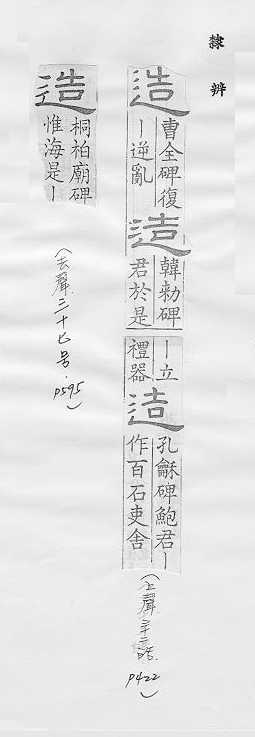 隸辨
造
曹全碑復
丨逆亂
造
韓勑碑
君於是
丨立
禮器
造
孔龢碑鮑君丨
作百石吏舍
(上聲三十二皓. p422)
造
桐柏廟碑
惟海是丨
(去聲三十七号. p595)